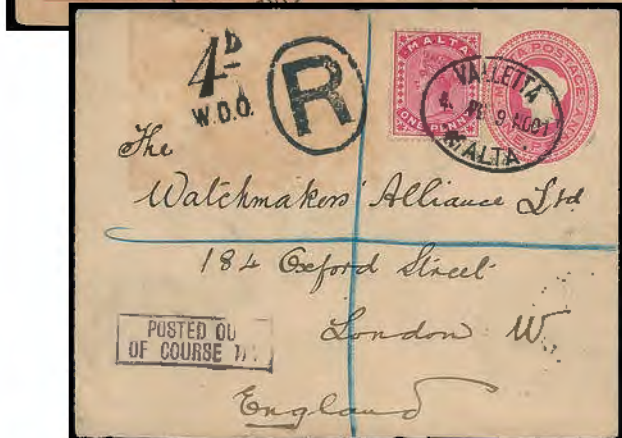 4D
W.D.O.
R
MALTA
ONE PENNY
MALTA POSTAGE
VALLETTA
MALTA
The
Watchmakers' Alliance Ltd
184 Oxford Street
London W.
England
POSTED OU
OF COURSE